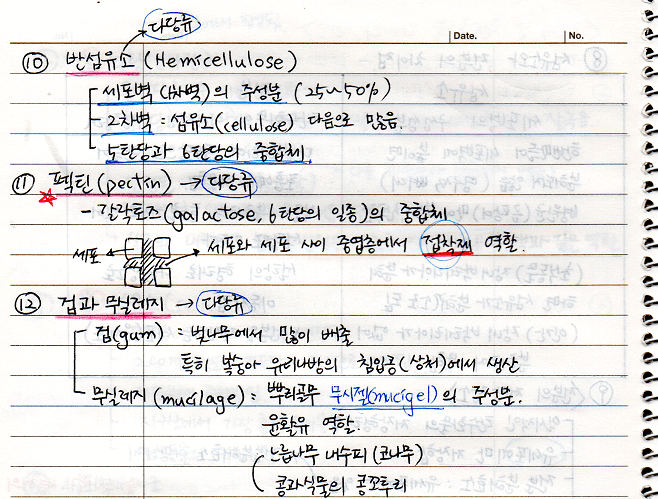 Date. No.
다당류
⑩ 반섬유소 (Hemicellulose)
세포벽 (1차벽)의 주성분 (25~50%)
2차벽 : 섬유소(cellulose) 다음으로 많음.
5탄당과 6탄당의 중합체
⑪ 펙틴(pectin) → 다당류
- 갈락토즈(galactose, 6탄당의 일종)의 중합체
세포 세포와 세포 사이 중엽층에서 접착제 역할.
⑫ 검과 무실레지 → 다당류
검(gum) : 벚나무에서 많이 배출
특히 복숭아 유리나방의 침입공(상처)에서 생산
무실레지(mucilage) : 뿌리골무 무시젤(mucigel)의 주성분.
윤활유 역할.
느릅나무 내수피 (코나무)
콩과식물의 콩꼬투리